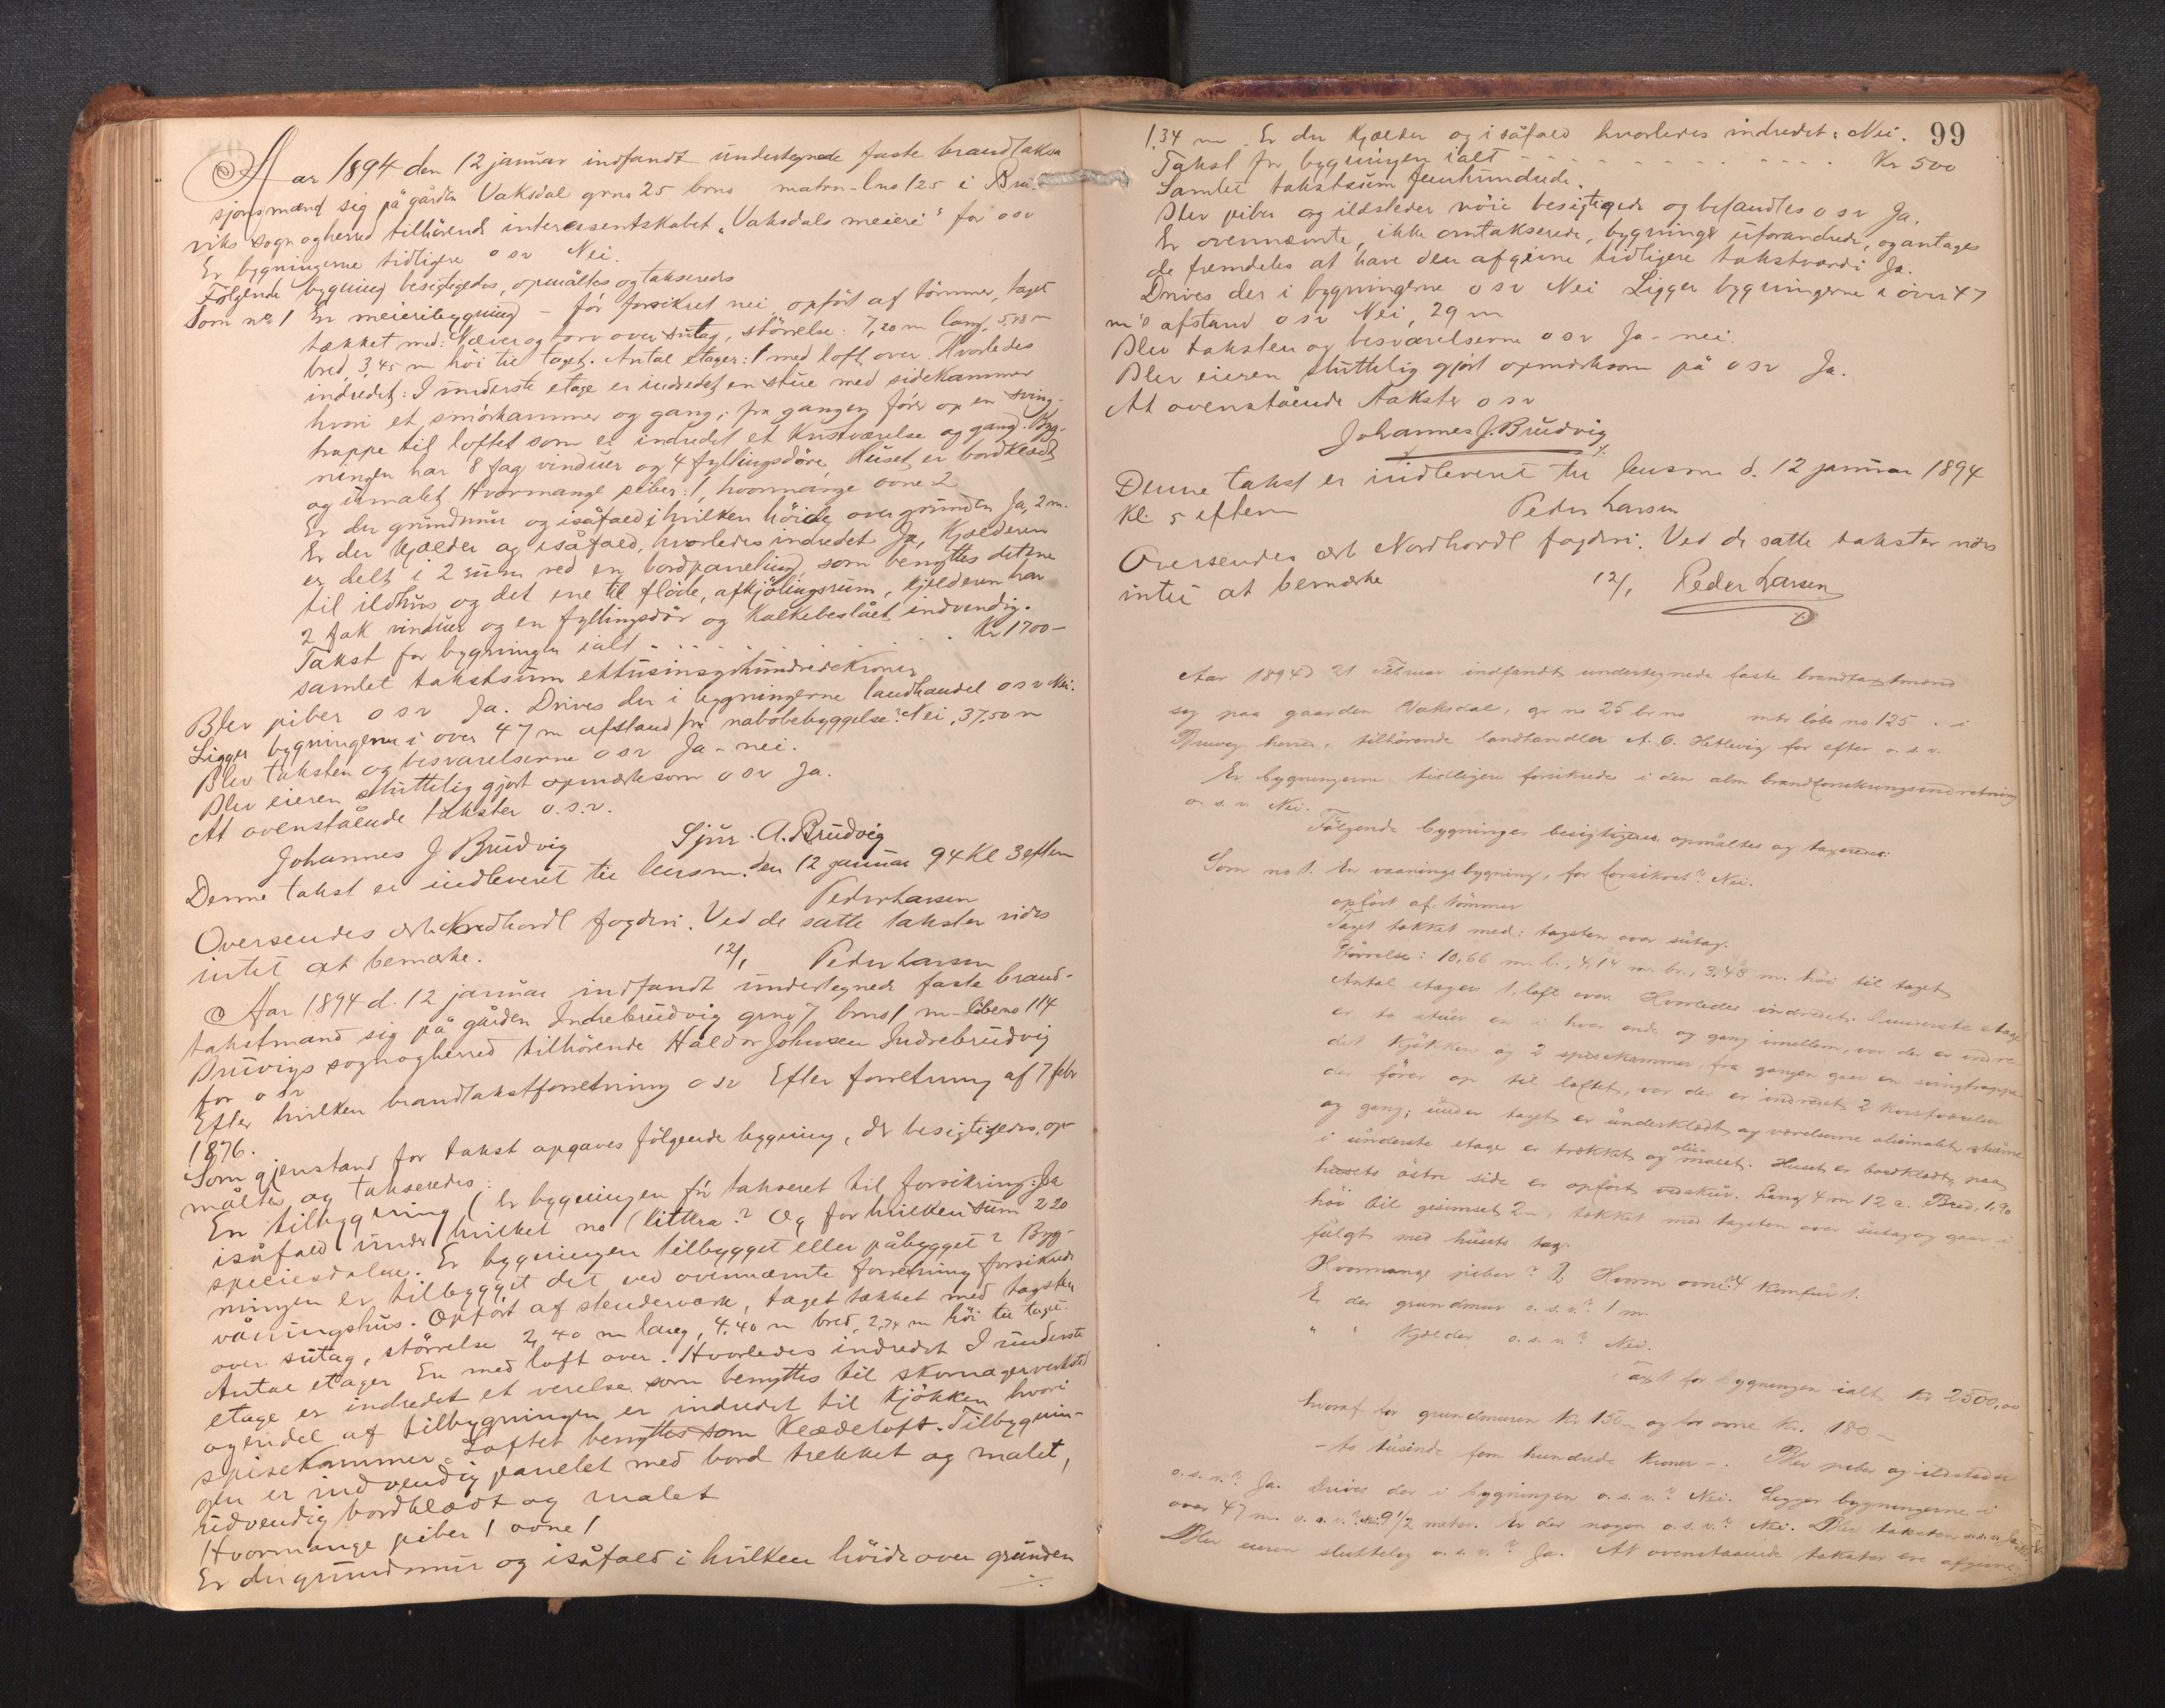 Aar 1894 den 12 januar indfandt undertegnede faste brandtaksa
sjonsmænd sig på gården Vaksdal grno 25 brno matrn-lno 125 i Bru-
viks sogn og herred tilhörende interessentskabet "Vaksdals meieri" for osv
Er bygningerne tidligere osv Nei.
Fölgende bygning besigtigedes, opmåltes og takseredes
Som no 1 En meieribygning - för forsikret nei, opfört af tömmer, taget
tækket med: Næver og torv over sutag, störrelse: 7,20 m lang, 5,98 m
bred, 3,45 m höi til taget. Antal Etager: 1 med loft over. Hvorledes
indredet: I underste etage er indredet en stue med sidekammer
hvori et smörkammer og gang; fra gangen förer op en sving-
trappe til loftet som er indredet et Kvistværelse og gang. Byg-
ningen har 8 fag vinduer og 4 fyllingsdöre, Huset er bordklædt
og umalet. Hvormange piber: 1, hvormange ovne 2
Er der grundmur og isåfald i hvilken höide over grunden Ja, 2 m.
Er der kjælder og isåfald, hvorledes indredet Ja, Kjælderen
er delt i 2 rum ved en bordpaneling, som benyttes det ene
til ildhus og det ene til flöde, afkjölingsrum, kjelderen har
2 fak vinduer og en fyllingsdör og Kalkebeslået indvendig.
Takst for bygningen ialt . . . . . . . Kr 1700-
samlet takstsum ettusinsyvhundredekroner
Blev piber osv Ja. Drives der i bygningerne landhandel osv Nei.
Ligger bygningerne i over 47 m afstand fra nabobebyggelse? Nei, 37,50 m
Blev taksten og besvarelserne osv Ja - nei.
Blev eieren sluttelig gjort opmærksom osv Ja.
At ovenstående takster o.s.v.
Johannes J Brudvig Sjur. A. Brudvig
Denne takst er indleveret til lensm. den 12 januar 94 Kl 3 eftm
Peder Larsen
Oversendes ærb. Nordhordl fogderi. Ved de satte takster vides
intet at bemærke. 12/1 Peder Larsen
Aar 1894 d. 12 januar indfandt undertegnede faste brand-
takstmænd sig på gården Indrebrudvig grno 7 brno 1 m-löbeno 114
Bruvigs sogn og herred tilhörende Haldor Johnsen Indrebrudvig
for osv
Efter hvilken brandtakstforretning osv Efter forretning af 7 febr
1876.
Som gjenstand for takst opgaves fölgende bygning, der besigtigedes, op-
måltes og takseredes:
En tilbygning (er bygningen för takseret til forsikring: Ja
isåfald under hvilket no (littra? Og for hvilken sum 220
speciesdaler. Er bygningen tilbygget eller påbygget? Byg-
ningen er tilbygget det ved ovennæmte forretning forsikrede
våningshus. Opfört af stenderværk, taget tækket med tagsten
over sutag, störrelse 2,40 m lang, 4,40 m bred, 2,74 m höi til taget.
Antal etager En med loft over. Hvorledes indredet I underste
etage er indredet et verelse som benyttes til skomagerverksted
og endel af tilbygningen er indredet til kjökken hvori
spisekammer. Loftet benyttes som Klædeloft. Tilbygnin-
gen er indvendig panelet med bord trekket og malet,
udvendig bordklædt og malet
Hvormange piber 1 ovne 1
Er der grundmur og isåfald i hvilken höide over grunden
99
1,34 m Er der Kjælder og isåfald hvorledes indredet: Nei.
Takst for bygningen ialt - - - - - - - - Kr 500
Samlet takstsum femhundrede.
Blev piber og ildsteder nöie besigtigede og befandtes osv Ja.
Er ovennæmte, ikke omtakserede, bygninge uforandrede, og antages
de fremdeles at have den afgivne tidligere takstværdi Ja.
Drives der i bygningerne osv Nei Ligger bygningerne i over 47
m's afstand osv Nei, 29 m
Blev taksten og besvarelserne osv Ja - nei.
Blev eieren sluttelig gjort opmerksom på osv Ja.
At ovenstående takster osv
Johannes J. Brudvig
Denne takst er indleveret til lensm d. 12 januar 1894
Kl. 5 efterm Peder Larsen
Oversendes ærb Nordhordl fogderi. Ved de satte takster vides
intet at bemærke 12/1 Peder Larsen
Aar 1894 d 21 Februar indfandt undertegnede faste brandtaxtmænd
sig paa gaarden Vaksdal, gr no 25 br no mtr löbe no 125 i
Bruvig herred, tilhörende landhandler A. O. Hetlevig for efter o. s. v.
Er bygningerne tidligere forsikrede i den alm brandforsikringsindretning
o. s. v. Nei.
Fölgende bygninger besigtigedes opmåltes og taxeredes:
Som no 1. En vaaningsbygning, för forsikret? Nei.
opfört af tömmer
Taget tækket med: tagsten over sutag.
Störrelse: 10,66 m. l., 4,14 m. br., 3,48 m. höi til taget
Antal etager 1, loft over. Hvorledes indredet. I underste etage
er to stuer en i hver ende og gang imellem, vor der er indre-
det kjökken og 2 spisekammer, fra gangen gaar en svingtrappe
der förer op til loftet, vor der er indredet 2 kvistværelser
og gang; under taget er underklædt og værelserne oliemalet, stuerne
i underste etage er trækket og olie- malet. Huset er bordklædt, paa
husets östre side er opfört vedskur. Lang 4 m 12 c. Bred, 1,90
höi til gisimset 2 m, tækket med tagsten over sutag og gaar i
fulgt med husets tag.
Hvormange piber? 2. Hvorm ovne? 4 Komfur 1.
Er der grundmur o. s. v.? 1 m.
" " Kjælder o. s. v.? Nei.
Taxt for bygningen ialt Kr 2500,00
hvoraf for grundmuren Kr 150 og for ovne Kr. 180 -
- to tusinde fem hundrede kroner -. Blev piber og ildsteder
o. s. v.? Ja. Drives der i bygningen o. s. v.? Nei. Ligger bygningerne i
over 47 m. o. s. v.? Nei 9 1/2 meter. Er der nogen o. s. v.? Nei. Blev taksten o. s. v.
Blev eieren sluttelig o. s. v.? Ja. At ovenstaaende takster ere afgivne